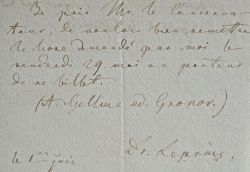 Je prie Mr. le Conserva-
teur, de vouloir bien remettre
le livre demandé par moi le
vendredi 29 mai au porteur
de ce billet.
(A. Gellius ed. Gronov.)
le 1er juin
Dr.